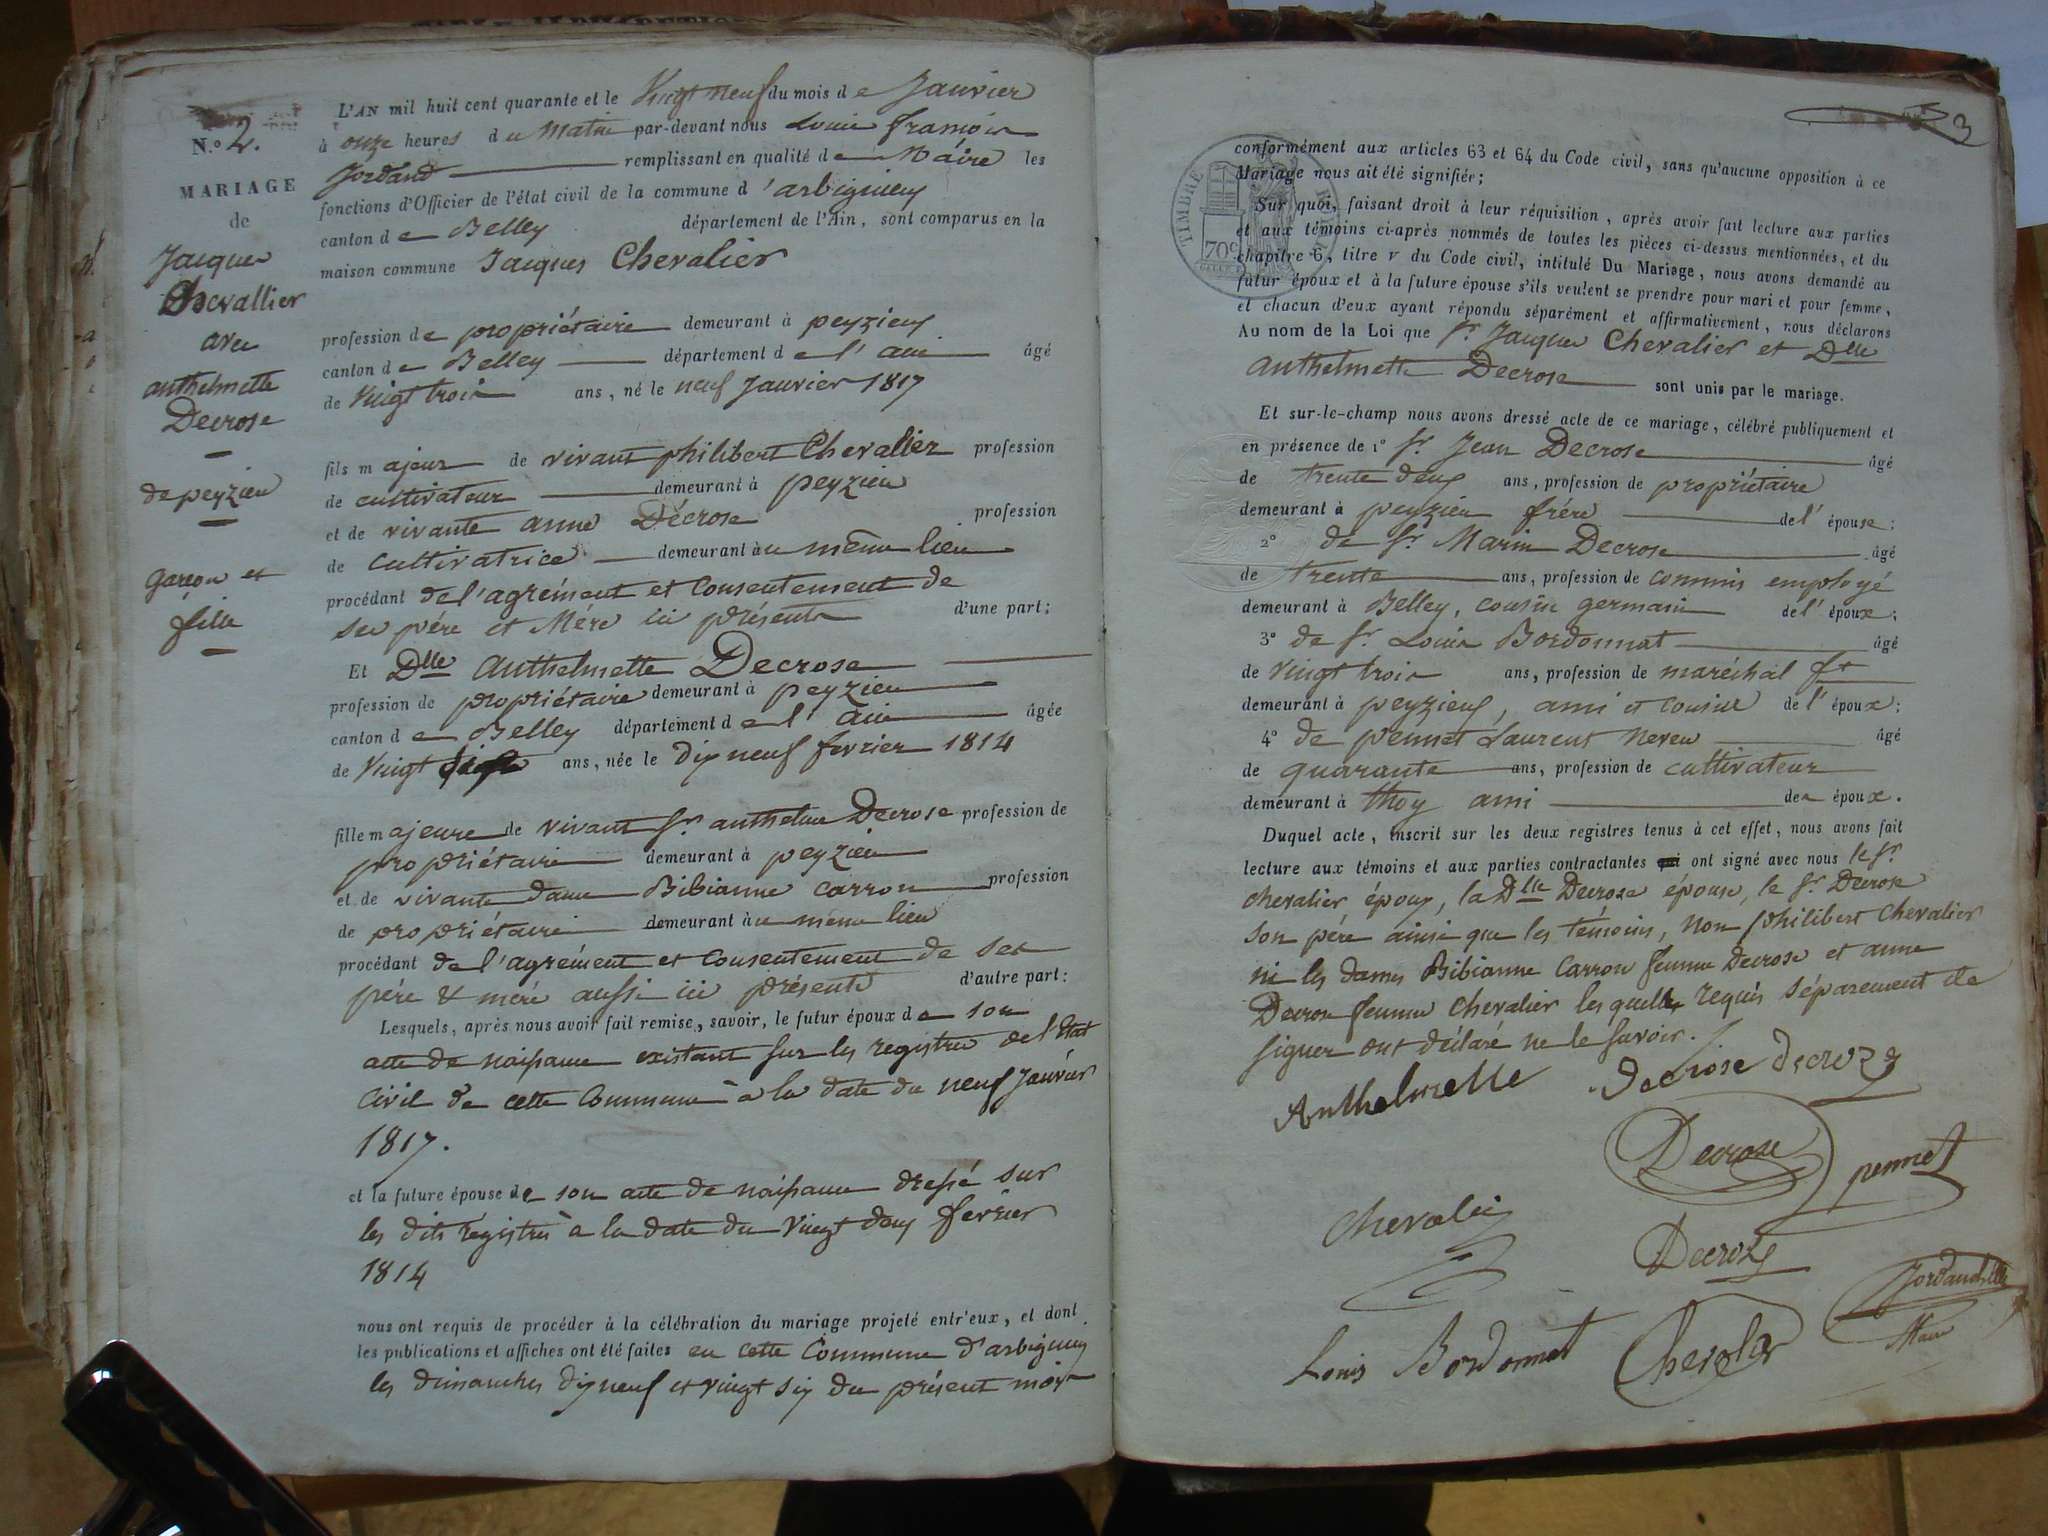 N.° 2.
MARIAGE
de
Jacques
Chevallier
avec
anthelmette
Decrose
de peyzieu
garçon et
fille
L'AN mil huit cent quarante et le Vingt neuf du mois de Janvier
à onze heures du Matin par-devant nous Louis françois
Jordand remplissant en qualité de Maire les
fonctions d'Officier de l'état civil de la commune d'arbignieu
canton de Belley département de l'Ain, sont comparus en la
maison commune Jacques Chevalier
profession de propriétaire demeurant à peyzieu
canton de Belley département de l'ain âgé
de Vingt trois ans, né le neuf Janvier 1817
fils majeur de vivant philibert Chevalier profession
de cultivateur demeurant à peyzieu
et de vivante anne Décrose profession
de cultivatrice demeurant au même lieu
procédant de l'agrément et Consentement de
ses père et Mère ici présents d'une part;
Et Dlle Anthelmette Decrose
profession de propriétaire demeurant à peyzieu
canton de Belley département de l'ain âgée
de Vingt ans, née le dix neuf fevrier 1814
fille majeure de vivant Sr anthelme Decrose profession de
propriétaire demeurant à peyzieu
et de vivante dame Bibianne Carron profession
de propriétaire demeurant au même lieu
procédant de l'agrément et Consentement de ses
père & mère aussi ici présents d'autre part:
Lesquels, après nous avoir fait remise, savoir, le futur époux de son
acte de naissance existant sur les registres de l'Etat
Civil de cette Commune à la date du neuf Janvier
1817.
et la future épouse de son acte de naissance dressé sur
les dits régistres à la date du Vingt deux fevrier
1814
nous ont requis de procéder à la célébration du mariage projeté entr'eux, et dont
les publications et affiches ont été faites en cette Commune d'arbignieu
les dimanches dix neuf et vingt six du présent mois
3
TIMBRE ROYAL
70c
conformément aux articles 63 et 64 du Code civil, sans qu'aucune opposition à ce
Mariage nous ait été signifiée;
Sur quoi, faisant droit à leur réquisition, après avoir fait lecture aux parties
et aux témoins ci-après nommés de toutes les pièces ci-dessus mentionnées, et du
chapitre 6, titre v du Code civil, intitulé Du Mariage, nous avons demandé au
futur époux et à la future épouse s'ils veulent se prendre pour mari et pour femme,
et chacun d'eux ayant répondu séparément et affirmativement, nous déclarons
Au nom de la Loi que Sr Jacques Chevalier et Dlle
Anthelmette Decrose sont unis par le mariage.
Et sur-le-champ nous avons dressé acte de ce mariage, célébré publiquement et
en présence de 1° Sr Jean Decrose âgé
de trente deux ans, profession de propriétaire
demeurant à peyzieu frère de l'épouse;
2° de Sr Marin Decrose âgé
de trente ans, profession de commis employé
demeurant à Belley, cousin germain de l'époux;
3° de Sr Louis Bordonnat âgé
de Vingt trois ans, profession de maréchal ft
demeurant à peyzieu, ami et cousin de l'époux;
4° de pennet Laurent neveu âgé
de quarante ans, profession de cultivateur
demeurant à thoy ami des époux.
Duquel acte, inscrit sur les deux registres tenus à cet effet, nous avons fait
lecture aux témoins et aux parties contractantes qui ont signé avec nous le Sr
Chevalier époux, la Dlle Decrose épouse, le Sr Decrose
son père ainsi que les témoins, non philibert Chevalier
ni les dames Bibianne Carron femme Decrose et anne
Decrose femme Chevalier lesquelles requis séparement de
signer ont déclaré ne le Savoir.
Anthelmette Decrose Decroze
Decrose pennet
Chevalié Decroze
Jordand
Louis Bordonnat Maire